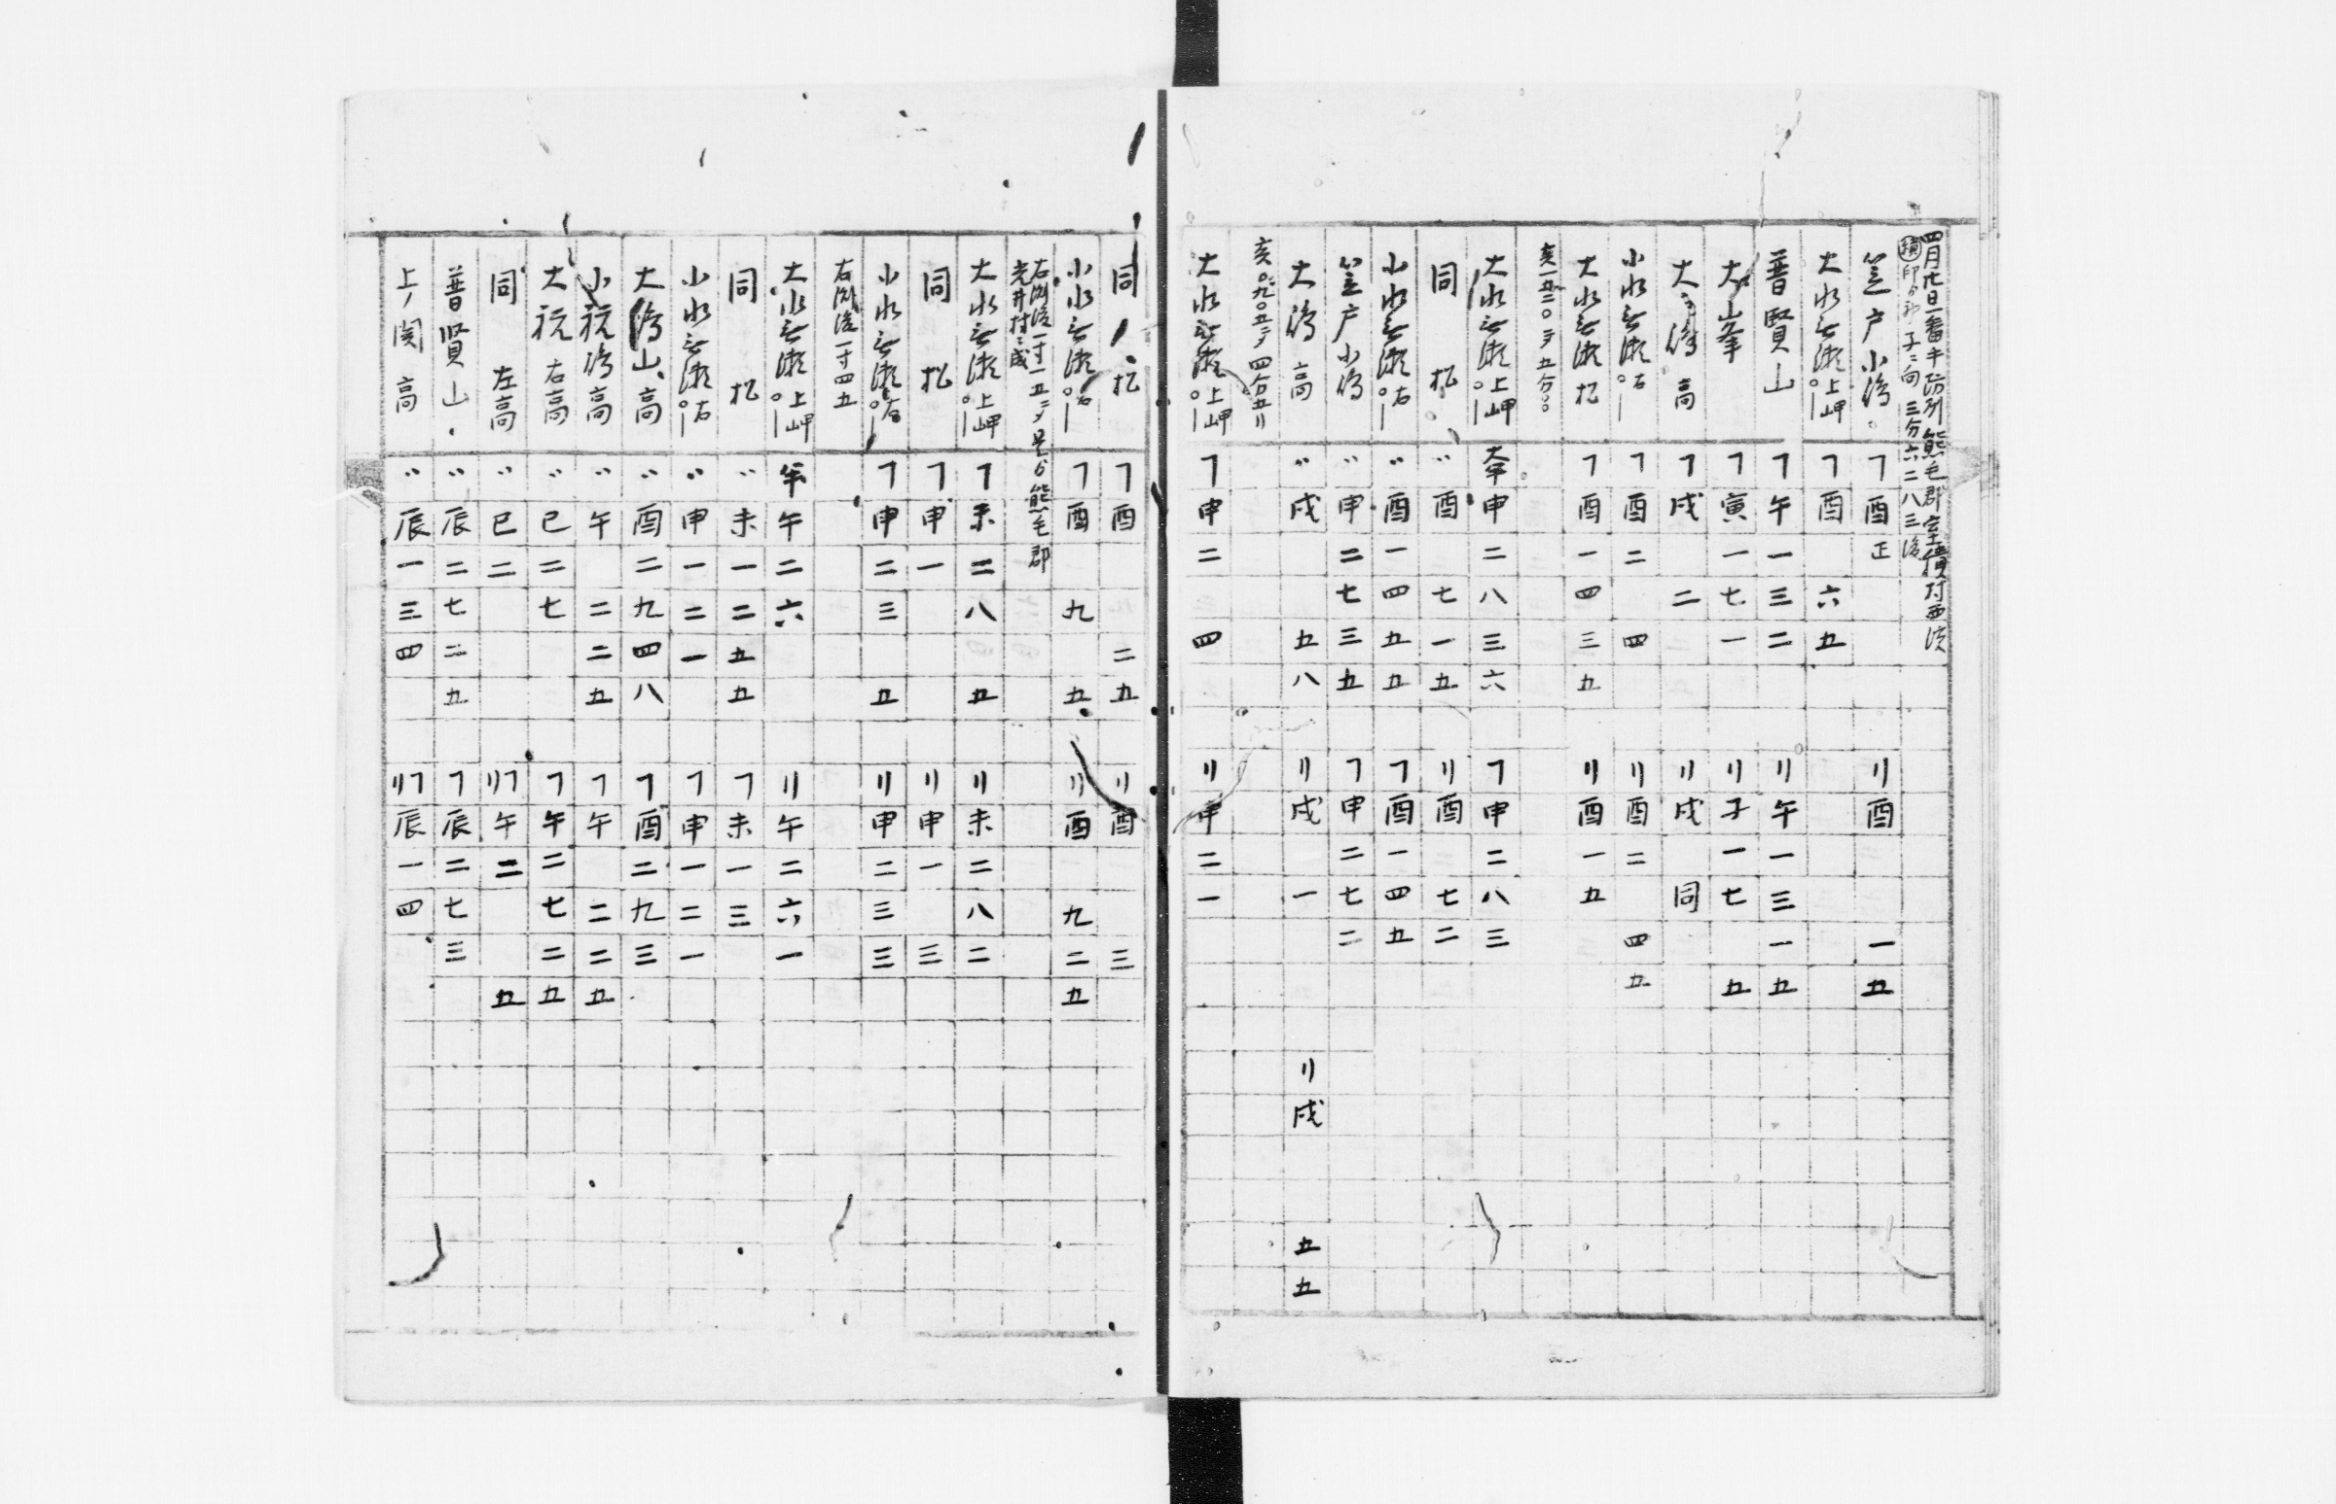 四月廿日一番手防州熊毛郡室積村西浜
印ゟ印子ニ向三分六二八三
笠戸小島 フ酉正 リ酉一五
大水無瀬上岬 フ酉六五
普賢山 フ午一三二 リ午一三一五
大山峯 フ寅一七一 リ子一七五
大島高 フ戌二 リ戌同
小水無瀬右 フ酉二四 リ酉二四五
大水無瀬松 フ酉一四三五 リ酉一五
大水無瀬上岬 申二八三六 フ申二八三
同松 〃酉七一五 リ酉七二
小水無瀬右 〃酉一四五五 フ酉一四五
笠戸小島 〃申二七三五 フ申二七二
大島高 〃戌五八 リ戌一 リ戌五五
大水無瀬上岬 フ申二四 リ申二一
同松 フ酉二五 リ酉三
小水無瀬右 フ酉九五 リ酉九二五
是ゟ熊毛郡
光井村
大水無瀬上岬 フ未二八五 リ未二八二
同松 フ申一 リ申一三
小水無瀬右 フ申二三五 リ申二三三
一寸四五
大水無瀬上岬 午二六 リ午二六一
同松 〃未一二五五 フ未一三
小水無瀬右 〃申一二一 フ申一二一
大島山高 〃酉二九四八 フ酉二九三
小祝島高 〃午二二五 フ午二二五
大祝右高 〃巳二七 フ午二七二五
同左高 〃巳二 リフ午二五
普賢山 〃辰二七二五 フ辰二七三
上ノ関高 〃辰一三四 リフ辰一四